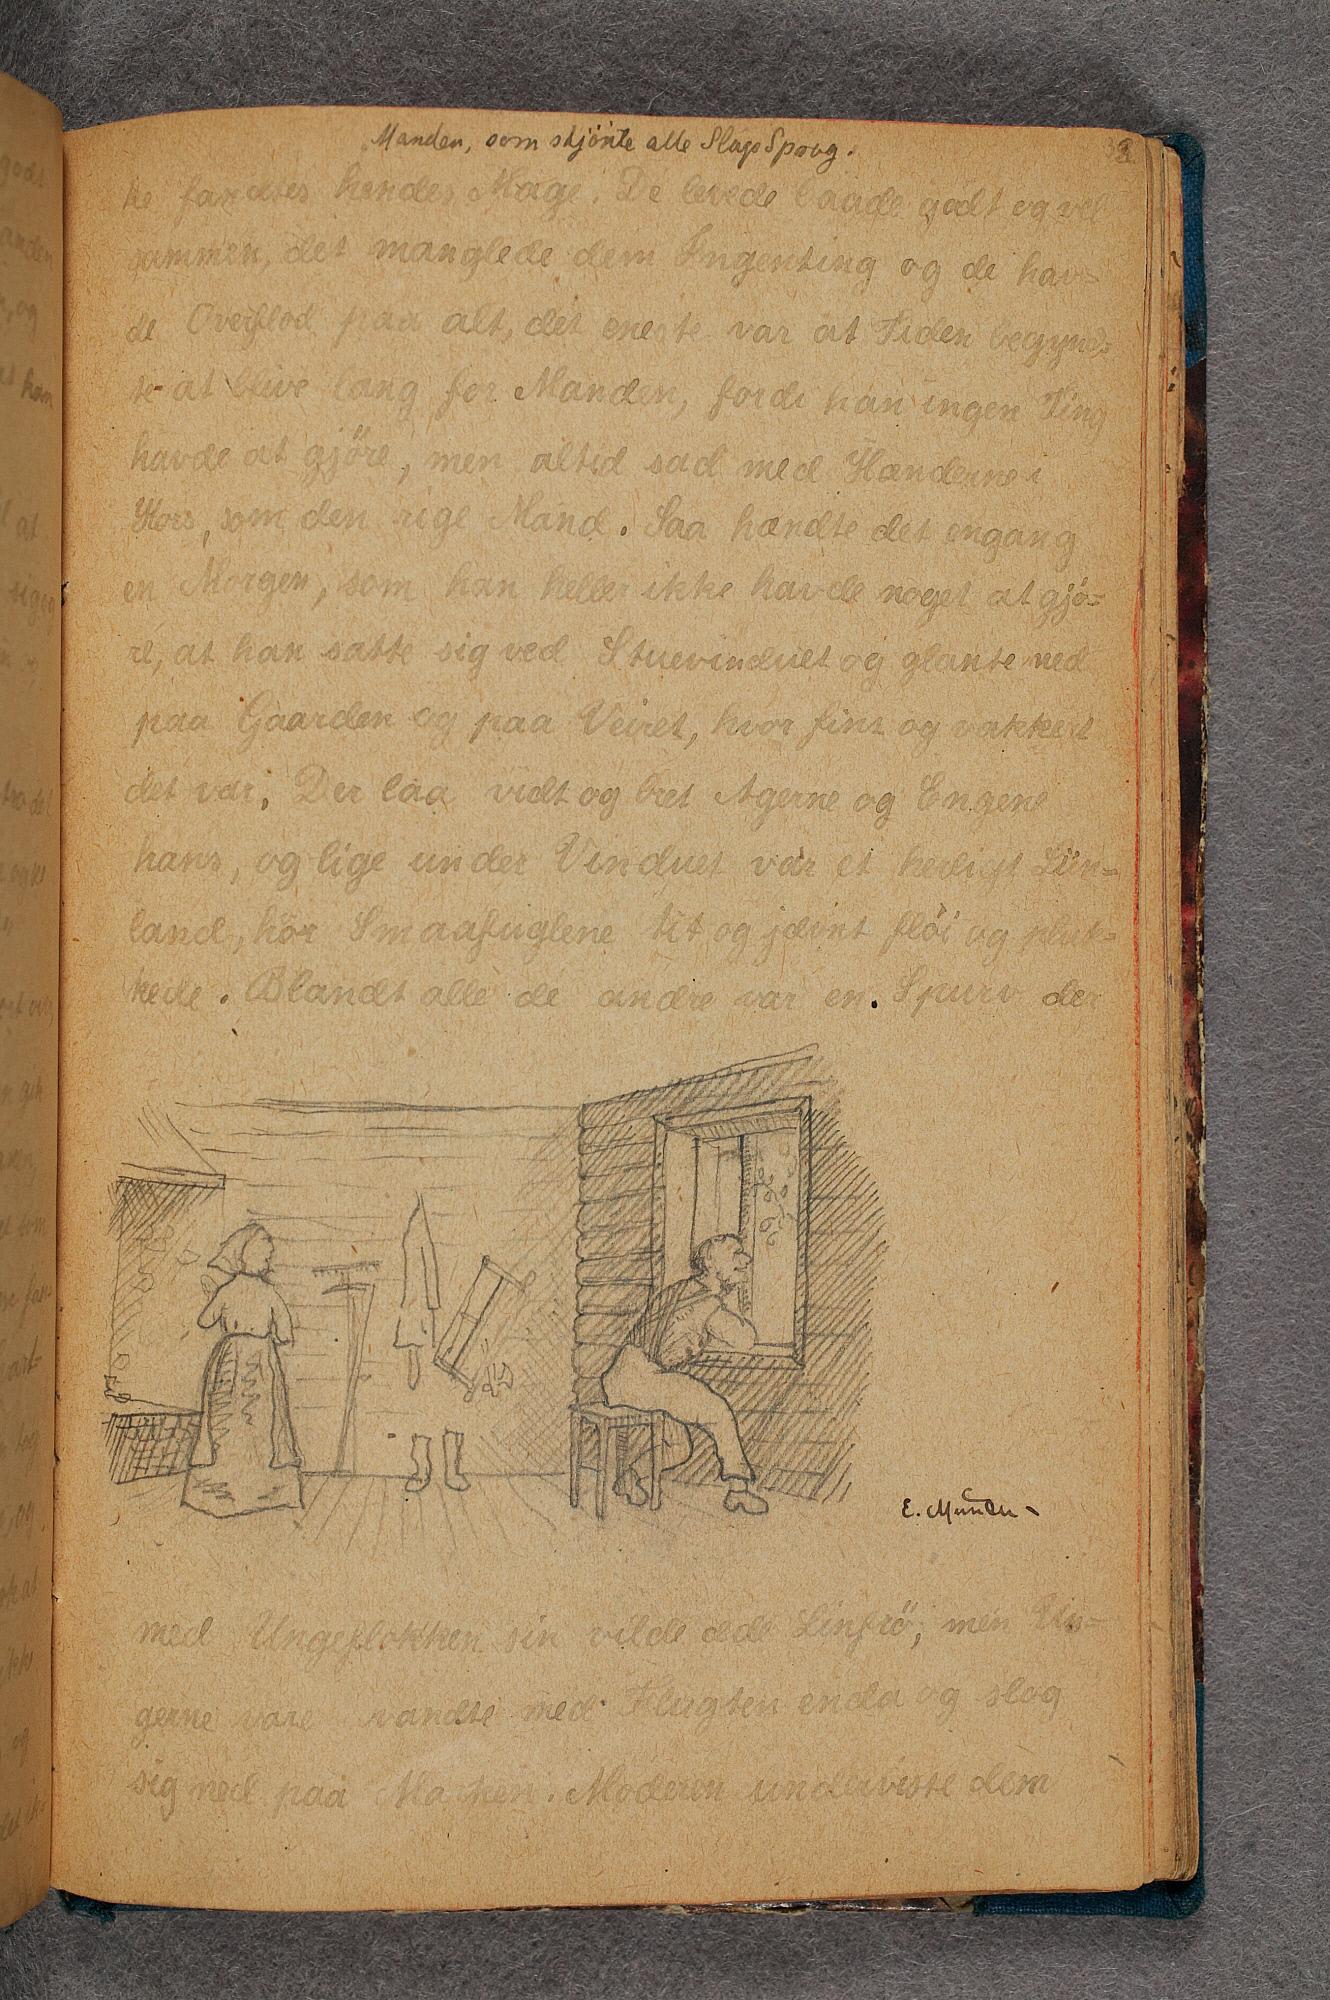 Manden, som skjönte alle Slags Sprog.
3
ke fandtes hendes Mage. De levede baade godt og vel
sammen, det manglede dem Ingenting og de hav-
de Overflod paa alt, det eneste var at Tiden begynd-
te at blive lang for Manden, fordi han ingen Ting
havde at gjöre, men altid sad med Hænderne i
Kors, som den rige Mand. Saa hændte det engang
en Morgen, som han heller ikke havde noget at gjö-
re, at han satte sig ved Stuevinduet og glante ned
paa Gaarden og paa Veiret, hvor fint og vakkert
det var. Der laa vidt og bret Agerne og Engene
hans, og lige under Vinduet var et herligt Lin-
land, hor Smaafuglene tit og jævnt flöi og pluk-
kede. Blandt alle de andre var en Spurv der
E. Munch
med Ungeflokken sin vilde æde Linfrö, men Un-
gerne vare vandte med Flugten enda og slog
sig ned paa Marken. Moderen underviste dem